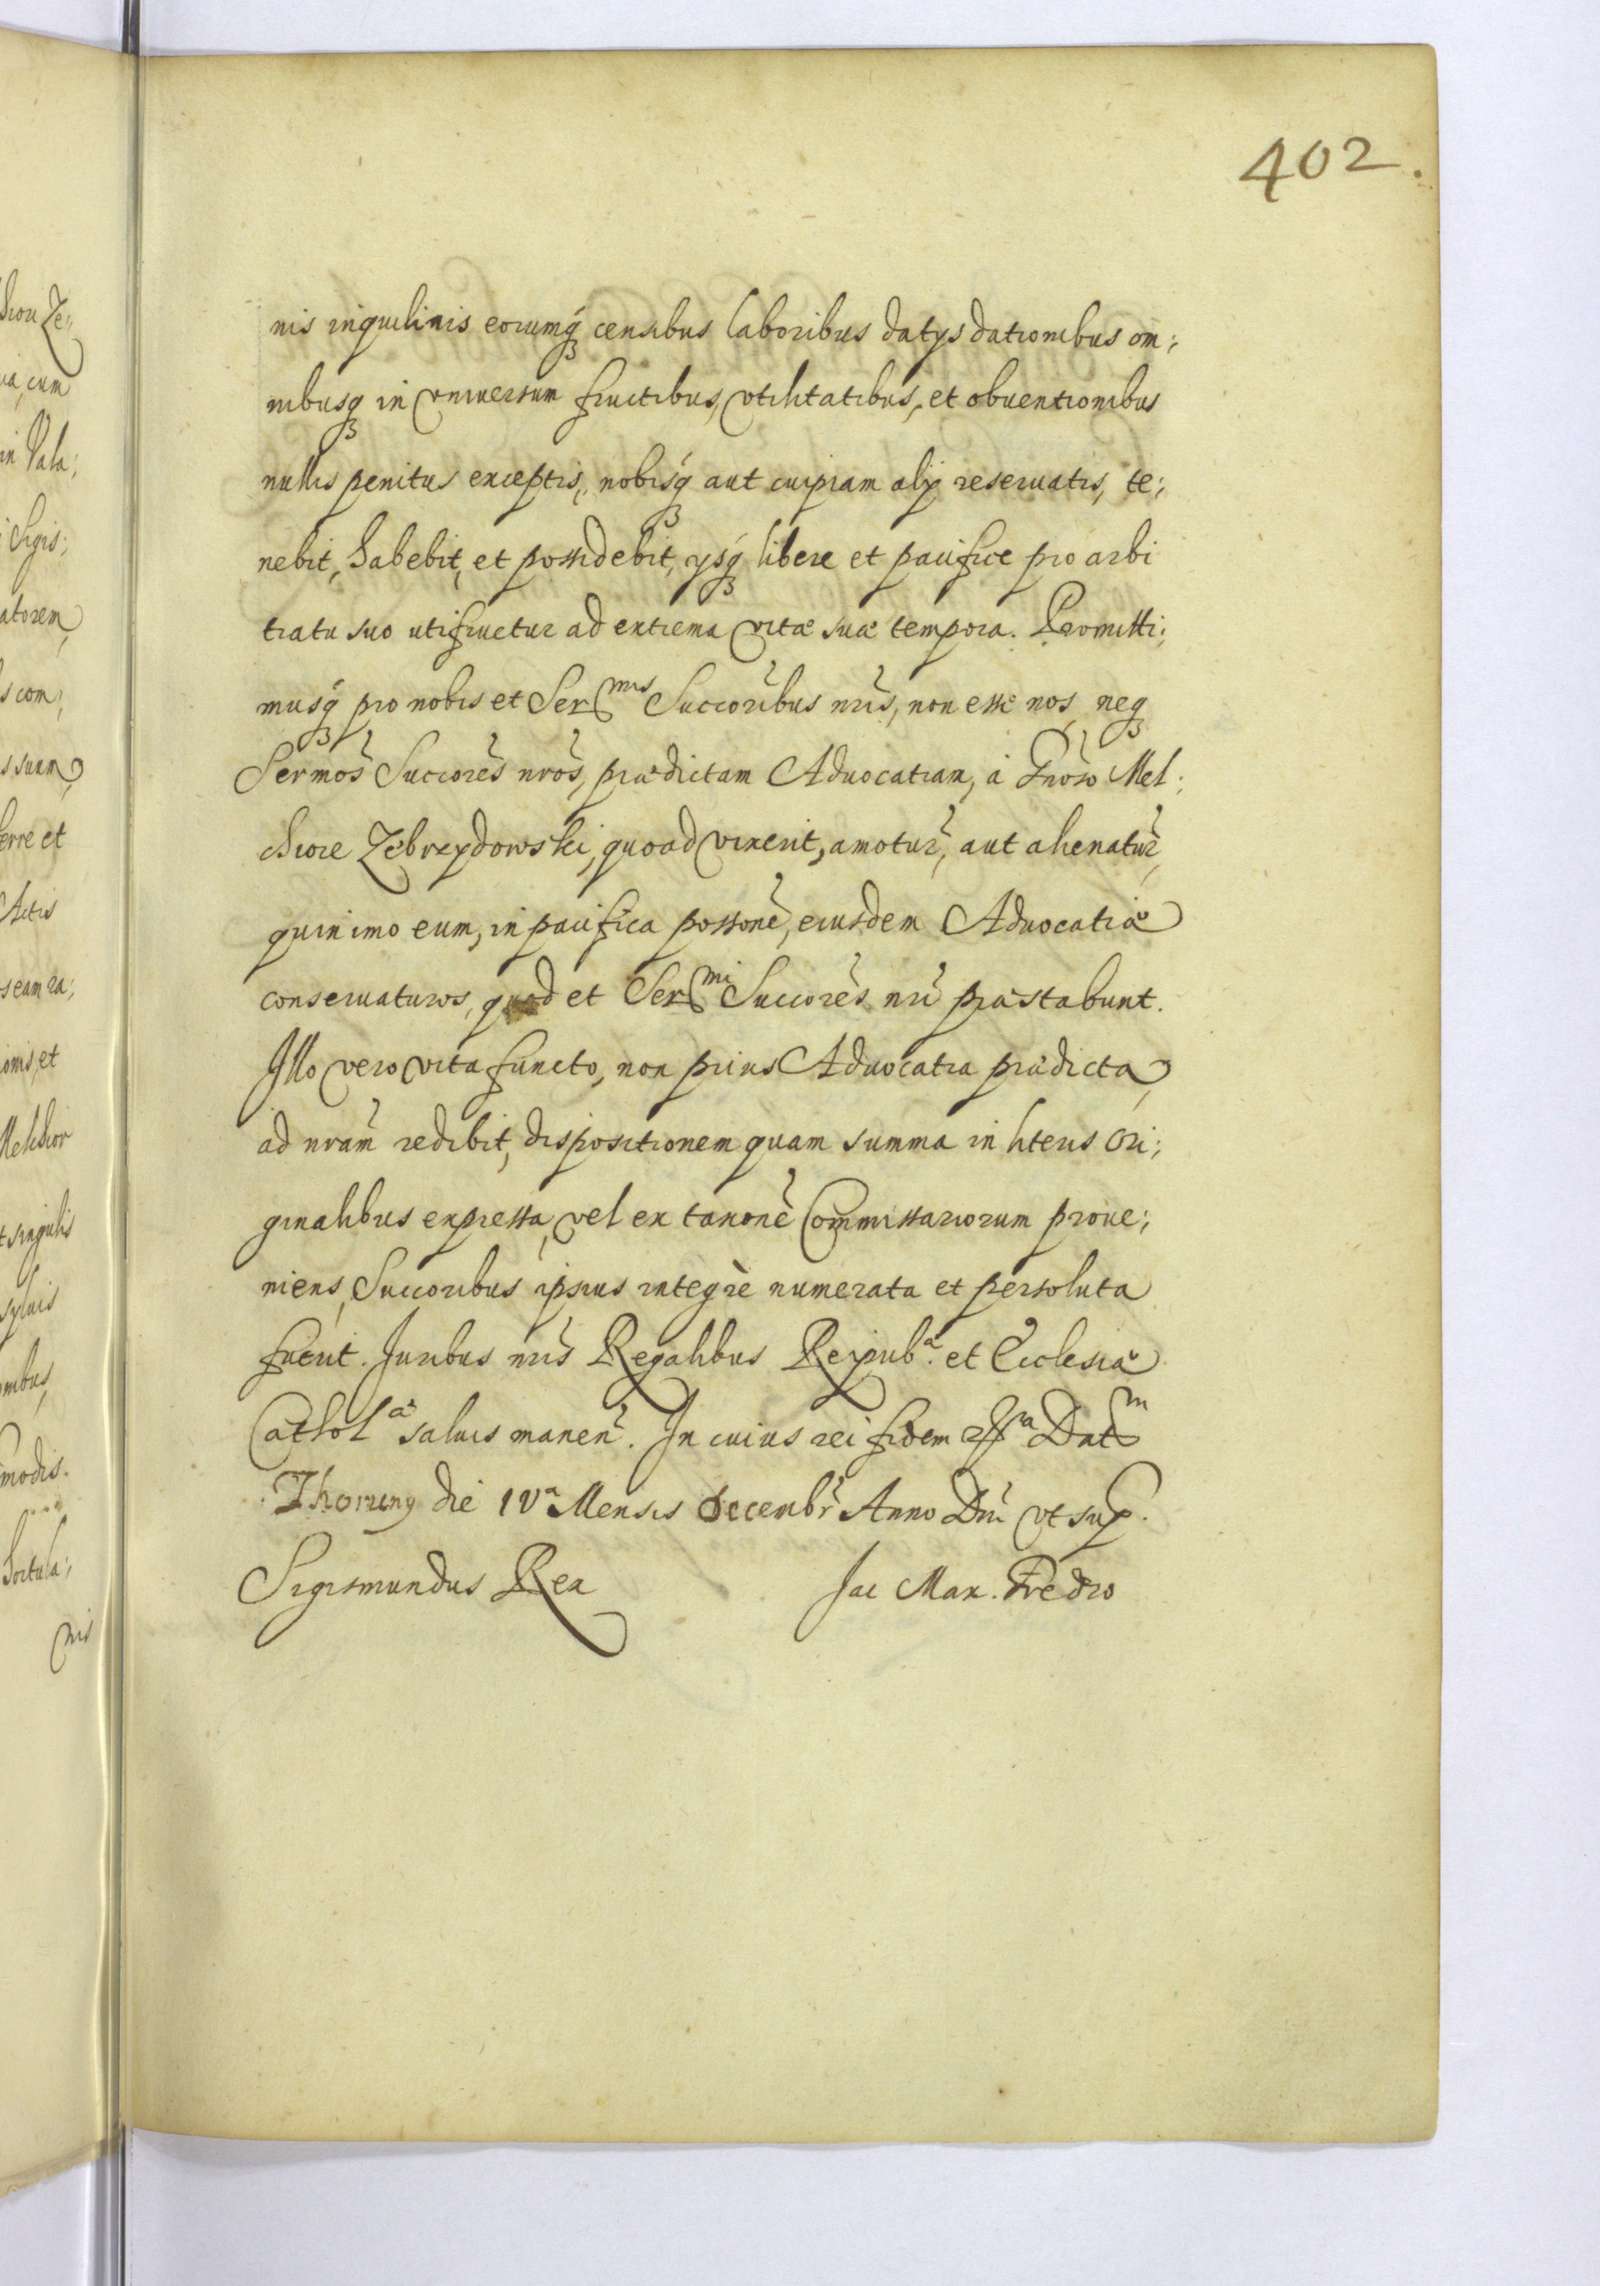 402.
nis inquilinis eorumq́ꝫ censibus laboribus datys dationibus om;
nibusqꝫ in vniuersum fructibus, vtilitatibus, et obuentionibus
nullis penitus exceptis, nobisq́ꝫ aut cuipiam alij reseruatis, te;
nebit, habebit, et possidebit, ysq́ꝫ libere et pacifice pro arbi
tratu suo utifruetur ad extrema vitæ suæ tempora. Promitti;
musq́ꝫ pro nobis et Ser mis Succoribus nris, non esse nos, neqꝫ
Sermos Succores nros, prædictam Aduocatiam, à Gnoso Mel;
chiore Zebrzydowski, quoad vixerit, amotur, aut alienatur,
quinimo eum, in pacifica possone, eiusdem Aduocatiæ
conseruaturos, quod et Ser mi Succores nri præstabunt.
Illo vero vita functo, non prius Aduocatia prædicta,
ad nram redibit, dispositionem quam summa in literis Ori;
ginalibus expressa, vel ex taxone Commissariorum proue;
niens, Succoribus ipsius integrè numerata et persoluta
fuerit. Juribus nris Regalibus Reipub a. et Ecclesiæ
Cathol æ saluis manen. In cuius rei fidem Dat m
Thoruny die IV a Mensis Decembr Anno Dni vt sup.
Sigismundus Rex Jac Max. Fredro
hior Ze;
ua, cum
in Pala;
Sigis;
atorem,
s com;
s suam,
ferre et
Actis
seam ra;
ionis, et
Melchior
t singulis
syluis
nibus,
modis.
hortula;
nis